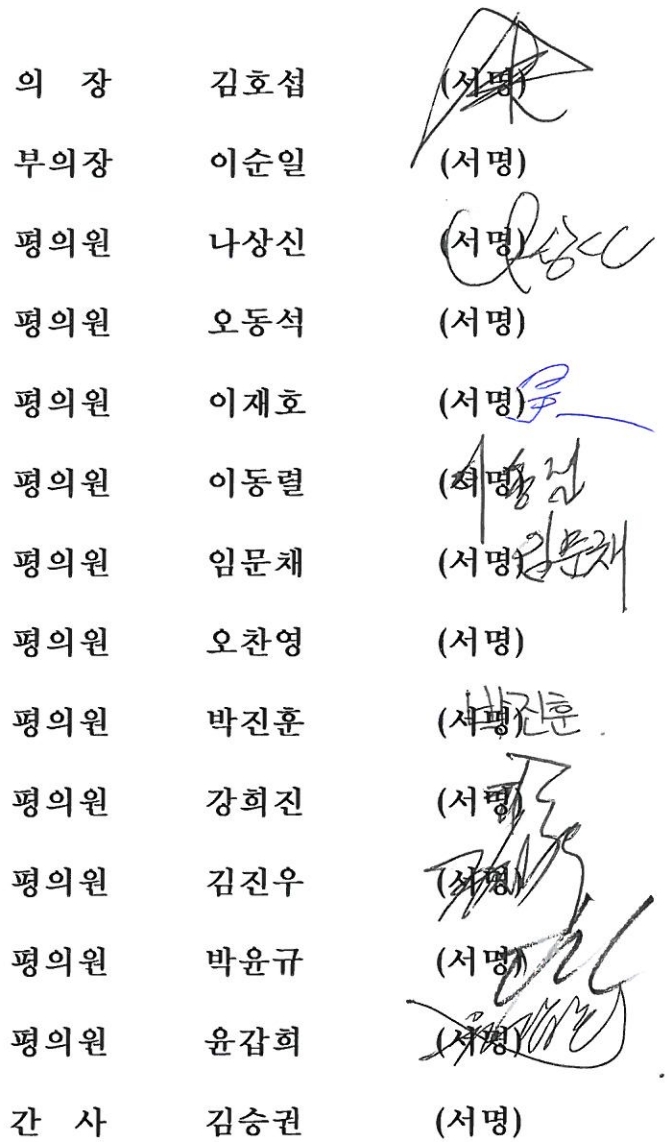 의 장 김호섭 (서명)
부의장 이순일 (서명)
평의원 나상신 (서명)
평의원 오동석 (서명)
평의원 이재호 (서명)
평의원 이동렬 (서명)
평의원 임문채 (서명) 임문채
평의원 오찬영 (서명)
평의원 박진훈 (서명) 박진훈
평의원 강희진 (서명)
평의원 김진우 (서명)
평의원 박윤규 (서명)
평의원 윤갑희 (서명)
간 사 김승권 (서명)